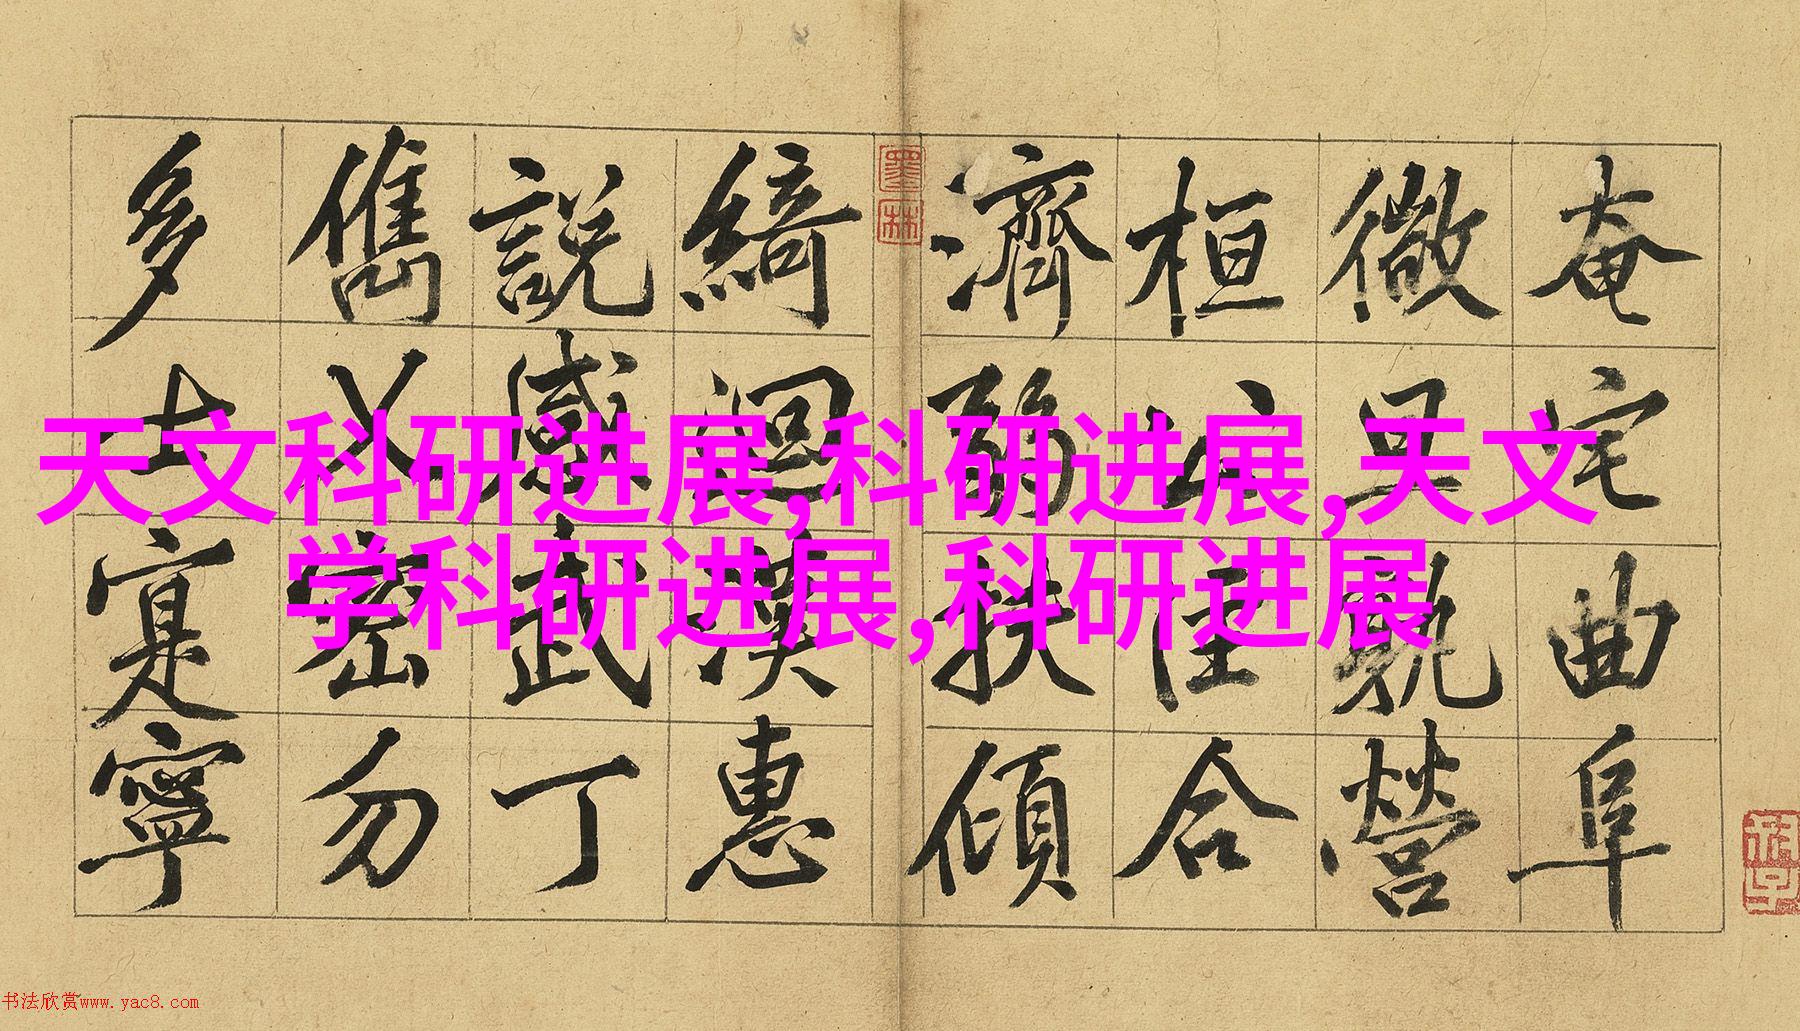 奄宅曲阜
微旦孰營
桓公匡合
濟弱扶傾
綺迴漢惠
說感武丁
儁乂密勿
多士寔寧
墨林
天文科研进展,科研进展,天文
学科研进展,科研进展
书法欣赏www.yac8.com